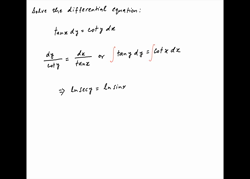 Solve the differential equation:
tanx dy = coty dx
dy/coty = dx/tanx or ∫tany dy = ∫cotx dx
⇒ ln secy = ln sinx